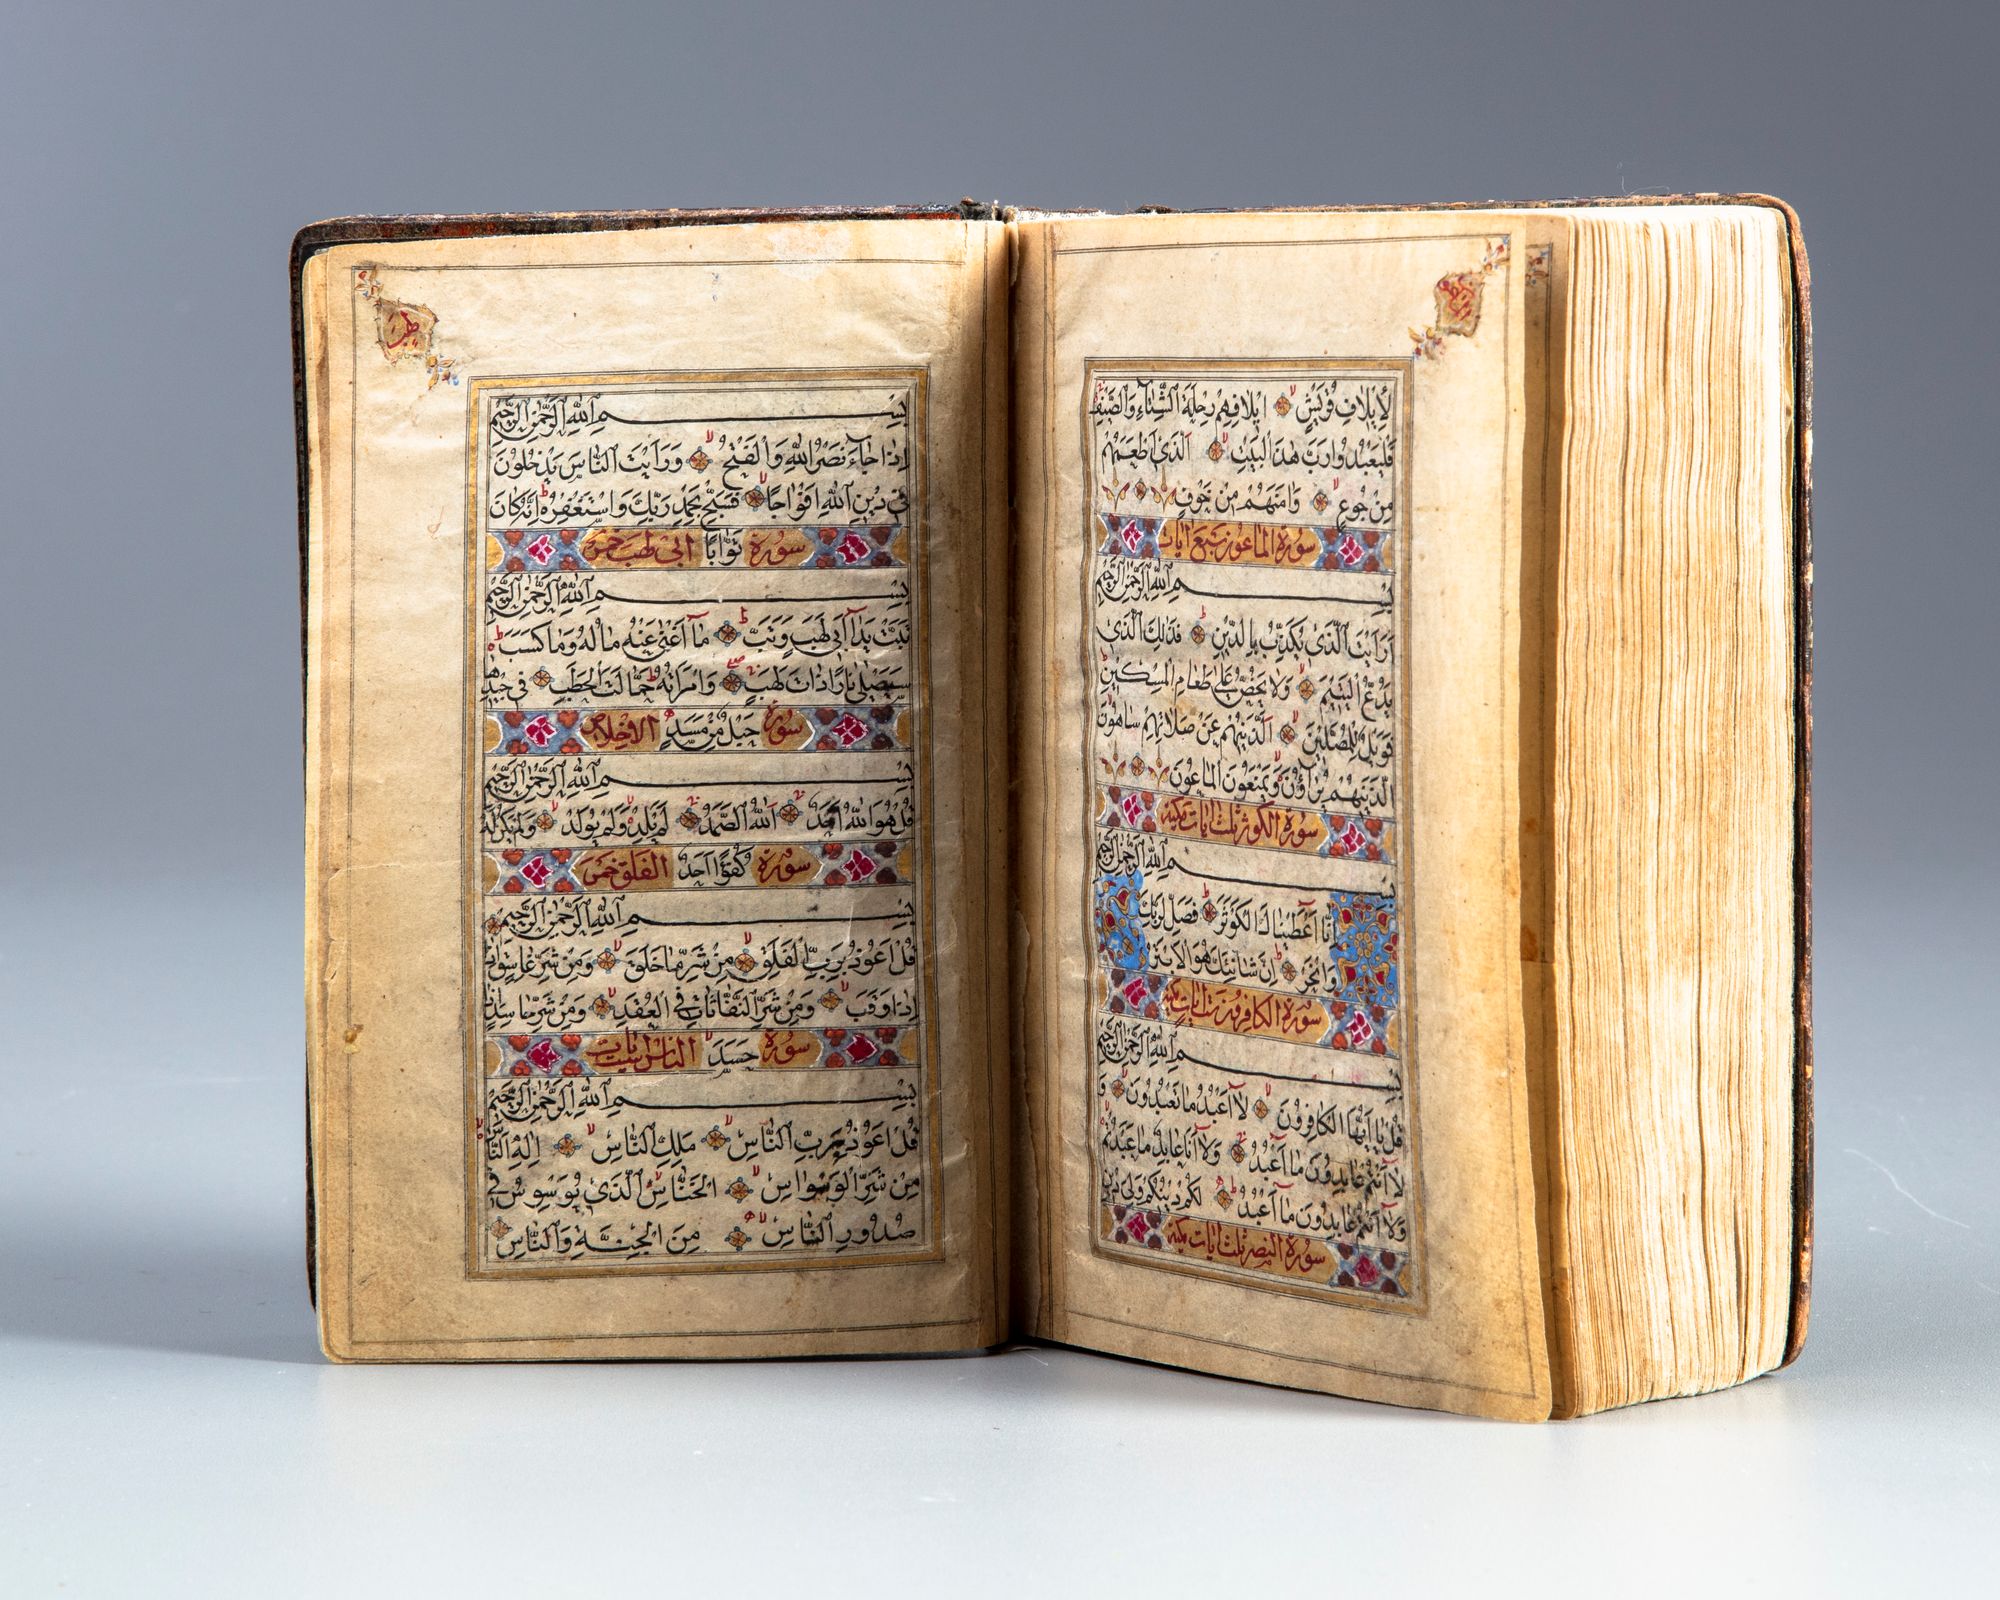 لِإِيلَافِ قُرَيْشٍ إِيلَافِهِمْ رِحْلَةَ الشِّتَاءِ وَالصَّيْفِ
فَلْيَعْبُدُوا رَبَّ هٰذَا الْبَيْتِ الَّذِي أَطْعَمَهُمْ
مِنْ جُوعٍ وَآمَنَهُمْ مِنْ خَوْفٍ
سورة الماعون سبع آيات
بِسْمِ اللَّهِ الرَّحْمٰنِ الرَّحِيمِ
أَرَأَيْتَ الَّذِي يُكَذِّبُ بِالدِّينِ فَذٰلِكَ الَّذِي
يَدُعُّ الْيَتِيمَ وَلَا يَحُضُّ عَلَى طَعَامِ الْمِسْكِينِ
فَوَيْلٌ لِلْمُصَلِّينَ الَّذِينَ هُمْ عَنْ صَلَاتِهِمْ سَاهُونَ
الَّذِينَ هُمْ يُرَاؤُنَ وَيَمْنَعُونَ الْمَاعُونَ
سورة الكوثر ثلث آيات مكية
بِسْمِ اللَّهِ الرَّحْمٰنِ الرَّحِيمِ
إِنَّا أَعْطَيْنَاكَ الْكَوْثَرَ فَصَلِّ لِرَبِّكَ
وَانْحَرْ إِنَّ شَانِئَكَ هُوَ الْأَبْتَرُ
سورة الكافرون ست آيات مكية
بِسْمِ اللَّهِ الرَّحْمٰنِ الرَّحِيمِ
قُلْ يَا أَيُّهَا الْكَافِرُونَ لَا أَعْبُدُ مَا تَعْبُدُونَ وَ
لَا أَنْتُمْ عَابِدُونَ مَا أَعْبُدُ وَلَا أَنَا عَابِدٌ مَا عَبَدْتُمْ
وَلَا أَنْتُمْ عَابِدُونَ مَا أَعْبُدُ لَكُمْ دِينُكُمْ وَلِيَ دِينِ
سورة النصر ثلث آيات مكية
بِسْمِ اللَّهِ الرَّحْمٰنِ الرَّحِيمِ
إِذَا جَاءَ نَصْرُ اللَّهِ وَالْفَتْحُ وَرَأَيْتَ النَّاسَ يَدْخُلُونَ
فِي دِينِ اللَّهِ أَفْوَاجًا فَسَبِّحْ بِحَمْدِ رَبِّكَ وَاسْتَغْفِرْهُ إِنَّهُ كَانَ
سورة تَوَّابًا ابي لهب خمس
بِسْمِ اللَّهِ الرَّحْمٰنِ الرَّحِيمِ
تَبَّتْ يَدَا أَبِي لَهَبٍ وَتَبَّ مَا أَغْنَى عَنْهُ مَالُهُ وَمَا كَسَبَ
سَيَصْلَى نَارًا ذَاتَ لَهَبٍ وَامْرَأَتُهُ حَمَّالَةَ الْحَطَبِ فِي جِيدِهَا
سورة حَبْلٌ مِنْ مَسَدٍ الاخلاص
بِسْمِ اللَّهِ الرَّحْمٰنِ الرَّحِيمِ
قُلْ هُوَ اللَّهُ أَحَدٌ اللَّهُ الصَّمَدُ لَمْ يَلِدْ وَلَمْ يُولَدْ وَلَمْ يَكُنْ لَهُ
سورة كُفُوًا أَحَدٌ الفلق خمس
بِسْمِ اللَّهِ الرَّحْمٰنِ الرَّحِيمِ
قُلْ أَعُوذُ بِرَبِّ الْفَلَقِ مِنْ شَرِّ مَا خَلَقَ وَمِنْ شَرِّ غَاسِقٍ
إِذَا وَقَبَ وَمِنْ شَرِّ النَّفَّاثَاتِ فِي الْعُقَدِ وَمِنْ شَرِّ حَاسِدٍ إِذَا
سورة حَسَدَ الناس ست آيات
بِسْمِ اللَّهِ الرَّحْمٰنِ الرَّحِيمِ
قُلْ أَعُوذُ بِرَبِّ النَّاسِ مَلِكِ النَّاسِ إِلٰهِ النَّاسِ
مِنْ شَرِّ الْوَسْوَاسِ الْخَنَّاسِ الَّذِي يُوَسْوِسُ فِي
صُدُورِ النَّاسِ مِنَ الْجِنَّةِ وَالنَّاسِ